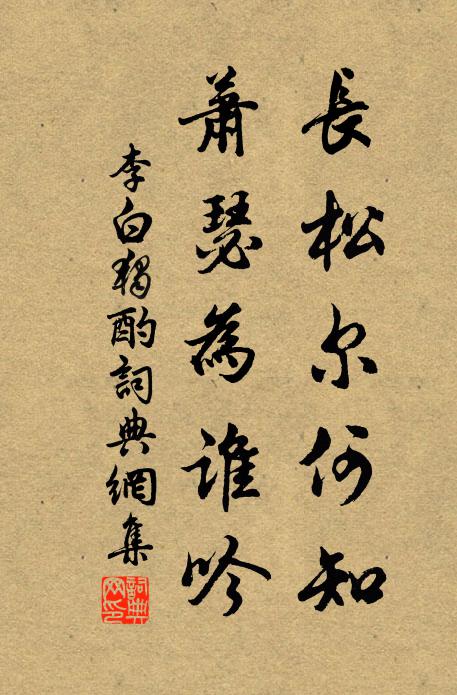 長松尔何知
蕭瑟為谁吟
李白獨酌詞典網集
詞典
网印